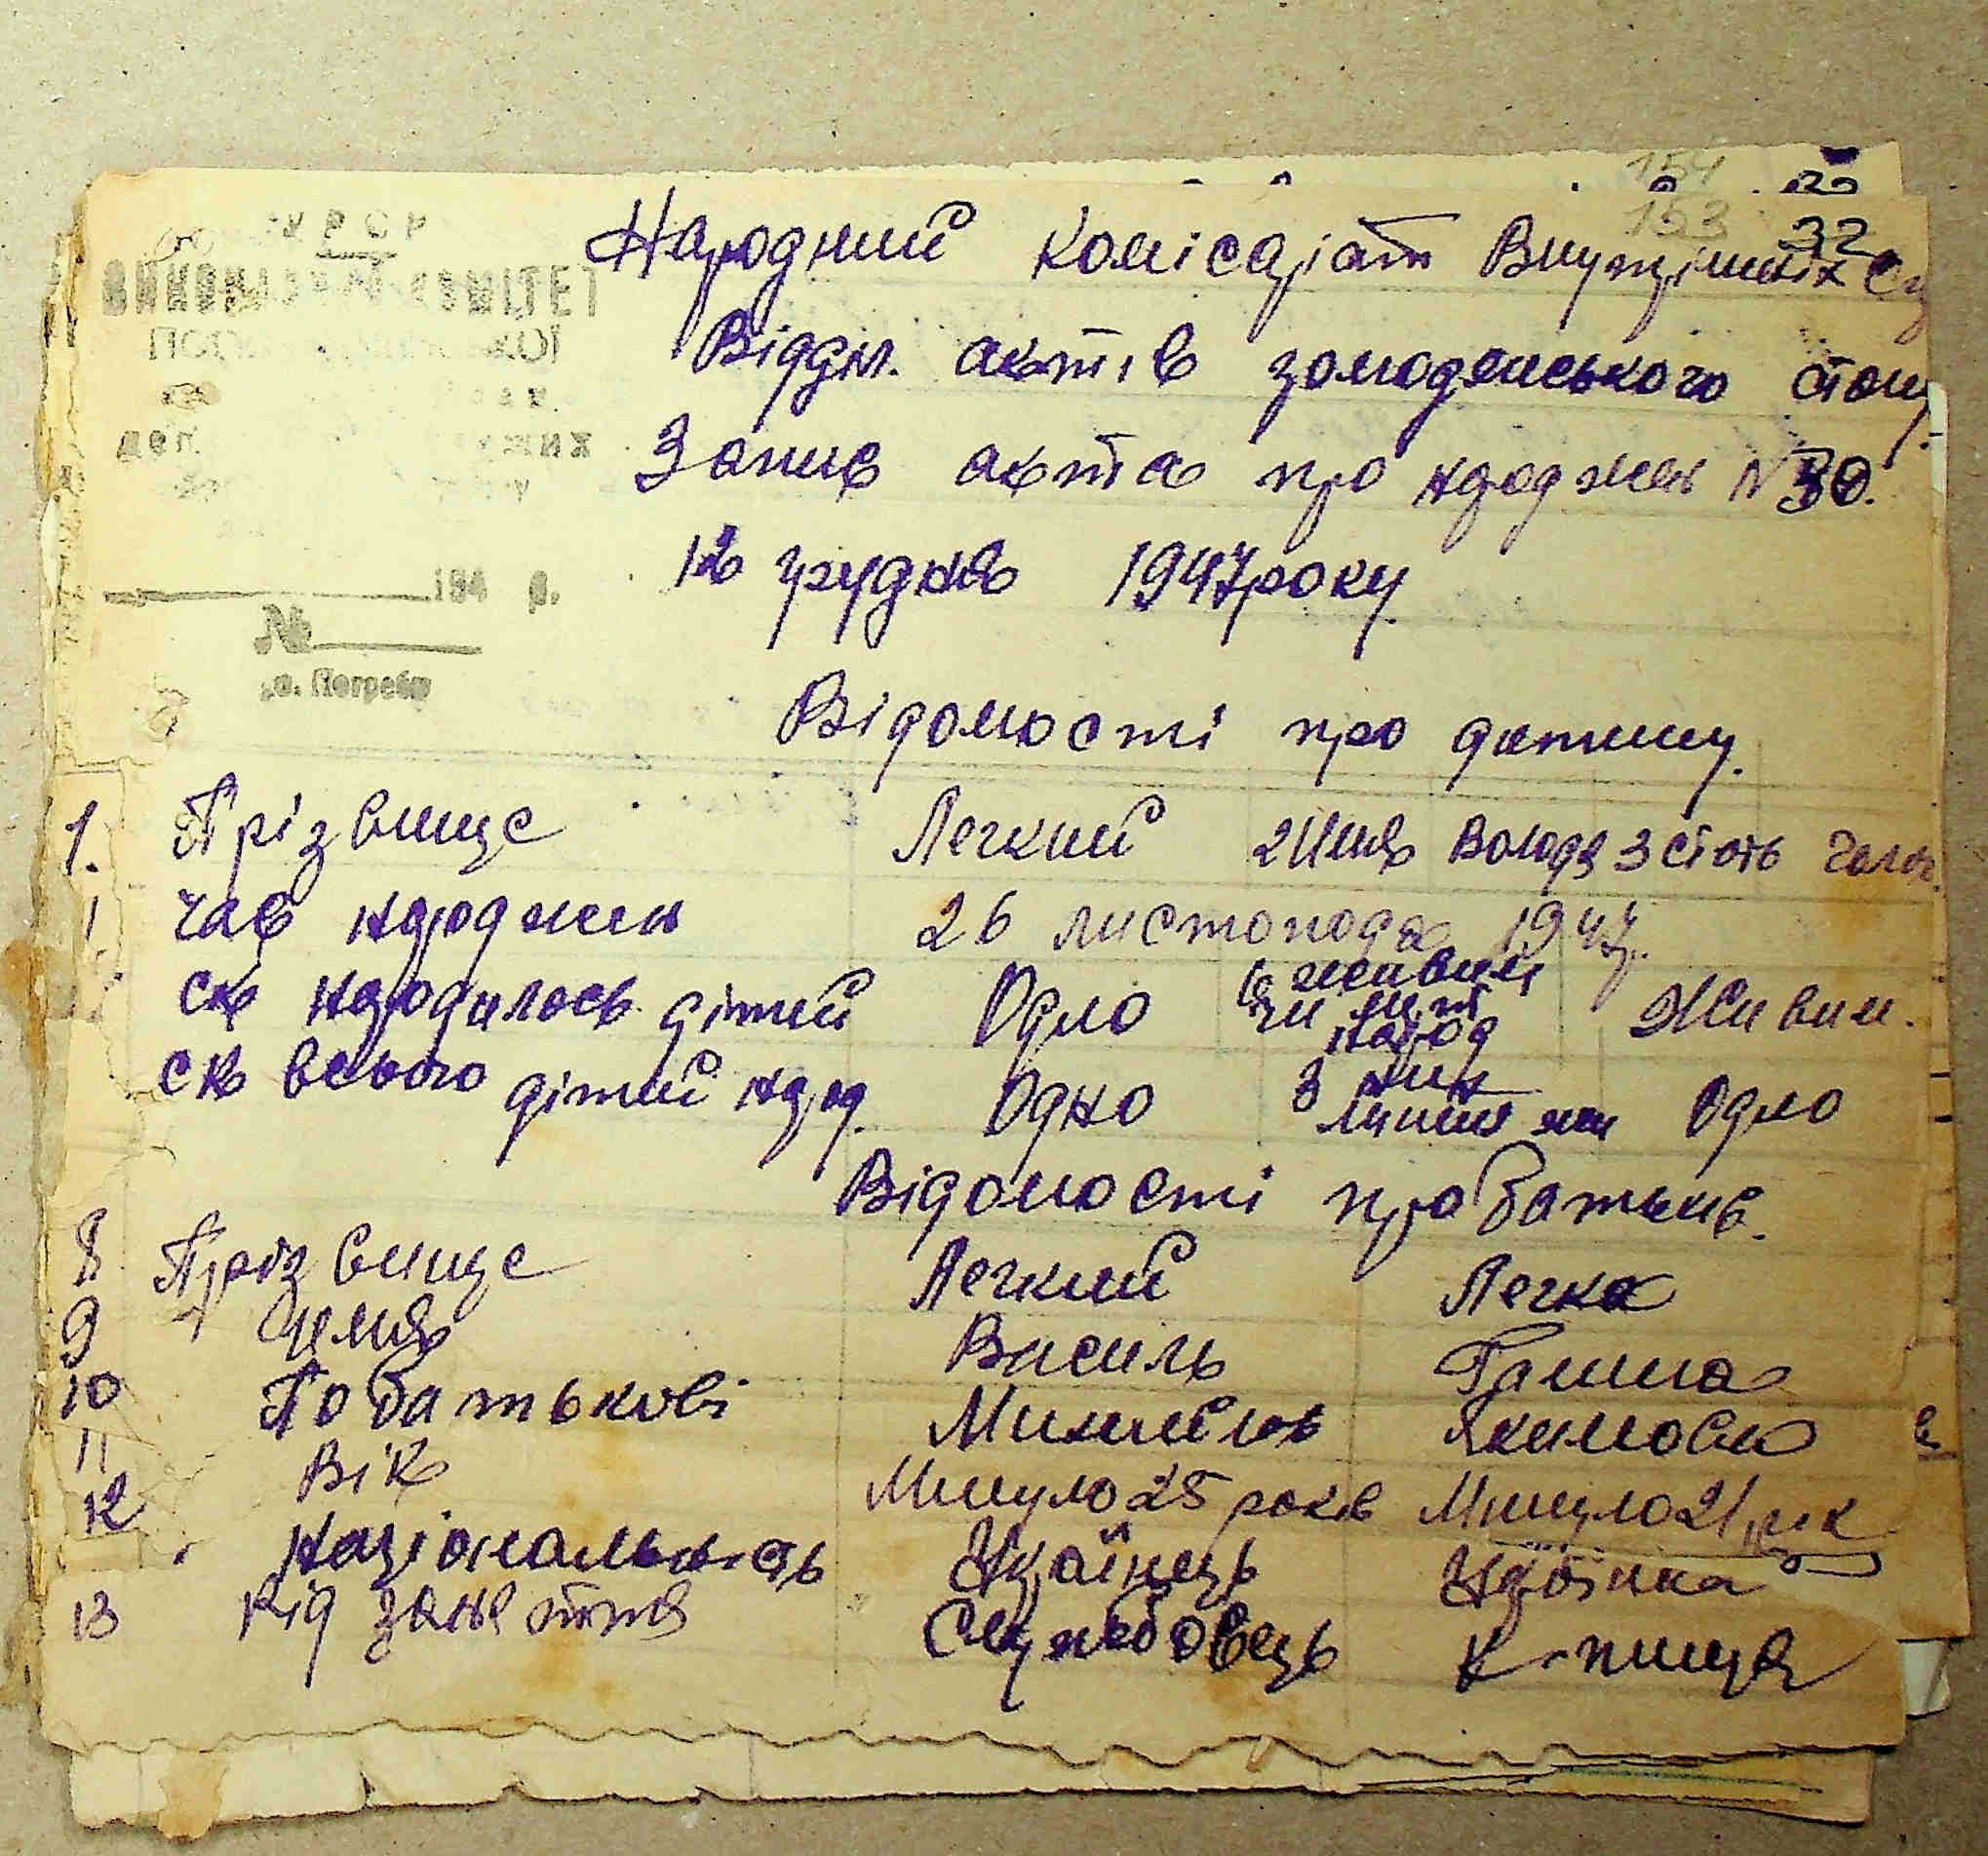 154
153 32
УРСР
ВИКОНАВЧИЙ КОМІТЕТ
194 р.
№
с. Погреби
Народний комісаріат Внутрішніх
Відділ. актів громодянського стану
Запис акта про нарожден № 30.
12 грудня 1947 року.
Відомості про детину.
1. Прізвище Легкий 2 Имя Володя 3 стать Чолов.
час нарожден 26 листопода 1947.
ск народилось дітей Одно живим чи мерт народ Живим.
ск всього дітей народ. Одно з них лишив Одно
Відомості про батьків.
8 Прізвище Легкий Легка
9 Имя Василь Ганна
10 По батькові Якимовна
11 Вік Минуло 25 років Минуло 21 рік
12 Національність Українець Українка
13 Рід заняття Службовець К-пиця